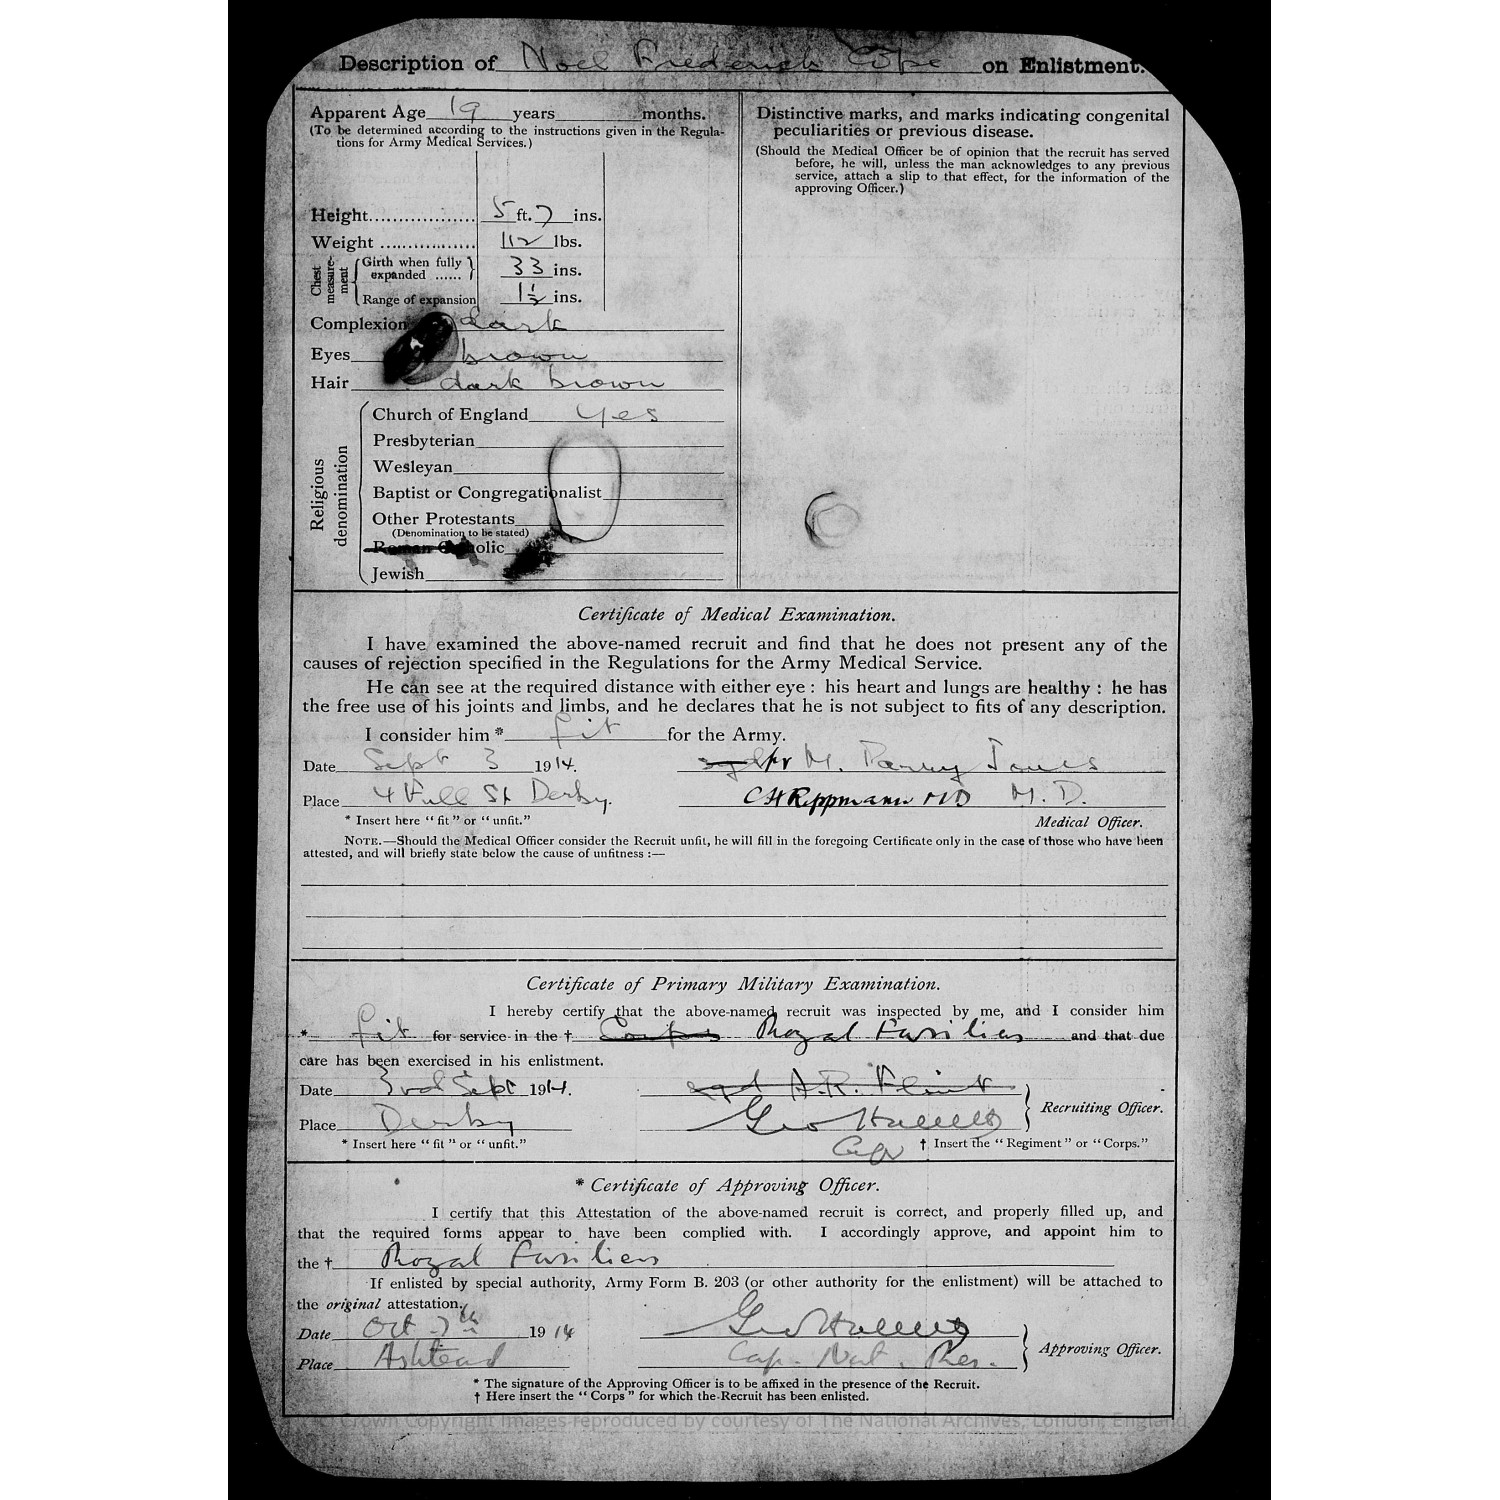 Description of Noel Frederick Cope on Enlistment.
Apparent Age 19 years months.
(To be determined according to the instructions given in the Regula-
tions for Army Medical Services.)
Height.................. 5 ft. 7 ins.
Weight ................ 112 lbs.
Chest measure-ment
Girth when fully expanded ...... 33 ins.
Range of expansion 1½ ins.
Complexion dark
Eyes brown
Hair dark brown
Religious denomination
Church of England Yes
Presbyterian
Wesleyan
Baptist or Congregationalist
Other Protestants
(Denomination to be stated)
Roman Catholic
Jewish
Distinctive marks, and marks indicating congenital
peculiarities or previous disease.
(Should the Medical Officer be of opinion that the recruit has served
before, he will, unless the man acknowledges to any previous
service, attach a slip to that effect, for the information of the
approving Officer.)
Certificate of Medical Examination.
I have examined the above-named recruit and find that he does not present any of the
causes of rejection specified in the Regulations for the Army Medical Service.
He can see at the required distance with either eye : his heart and lungs are healthy : he has
the free use of his joints and limbs, and he declares that he is not subject to fits of any description.
I consider him * fit for the Army.
Date Sept 3 1914. M. Parry Jones
Place 4 Full St Derby. C H Rippmann MD M.D.
* Insert here “ fit ” or “ unfit.” Medical Officer.
NOTE.—Should the Medical Officer consider the Recruit unfit, he will fill in the foregoing Certificate only in the case of those who have been
attested, and will briefly state below the cause of unfitness :—
Certificate of Primary Military Examination.
I hereby certify that the above-named recruit was inspected by me, and I consider him
* fit for service in the † Corps Royal Fusiliers and that due
care has been exercised in his enlistment.
Date 3rd Sept 1914. sgd A.R. Flint
Place Derby Geo Recruiting Officer.
* Insert here “ fit ” or “ unfit.” Cap † Insert the “ Regiment ” or “ Corps.”
* Certificate of Approving Officer.
I certify that this Attestation of the above-named recruit is correct, and properly filled up, and
that the required forms appear to have been complied with. I accordingly approve, and appoint him to
the † Royal Fusiliers
If enlisted by special authority, Army Form B. 203 (or other authority for the enlistment) will be attached to
the original attestation.
Date Oct 7th 1914 Geo
Place Ashtead Cap. Nat. Res. Approving Officer.
* The signature of the Approving Officer is to be affixed in the presence of the Recruit.
† Here insert the “ Corps ” for which the Recruit has been enlisted.
Crown Copyright Images reproduced by courtesy of The National Archives, London, England.